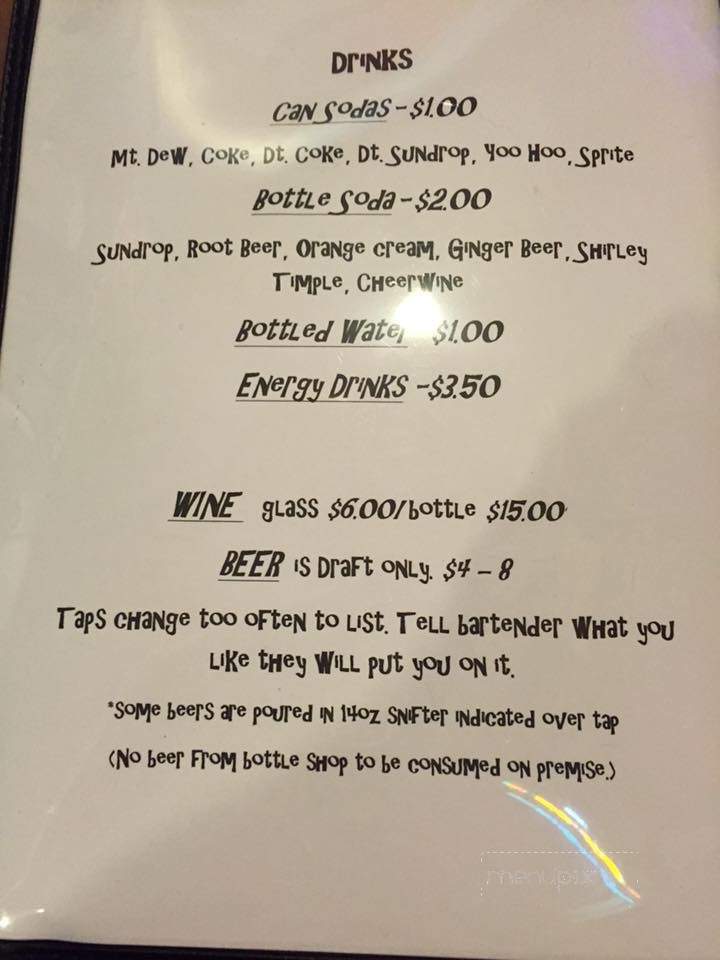 Drinks
Can Sodas - $1.00
Mt. Dew, Coke, Dt. Coke, Dt. Sundrop, Yoo Hoo, Sprite
Bottle Soda - $2.00
Sundrop, Root Beer, Orange cream, Ginger Beer, Shirley
Timple, Cheerwine
Bottled Water $1.00
Energy Drinks -$3.50
WINE glass $6.00/bottle $15.00
BEER is Draft only. $4 – 8
Taps change too often to list. Tell bartender what you
like they will put you on it.
*Some beers are poured in 14oz snifter indicated over tap
(No beer from bottle shop to be consumed on premise.)
menupix